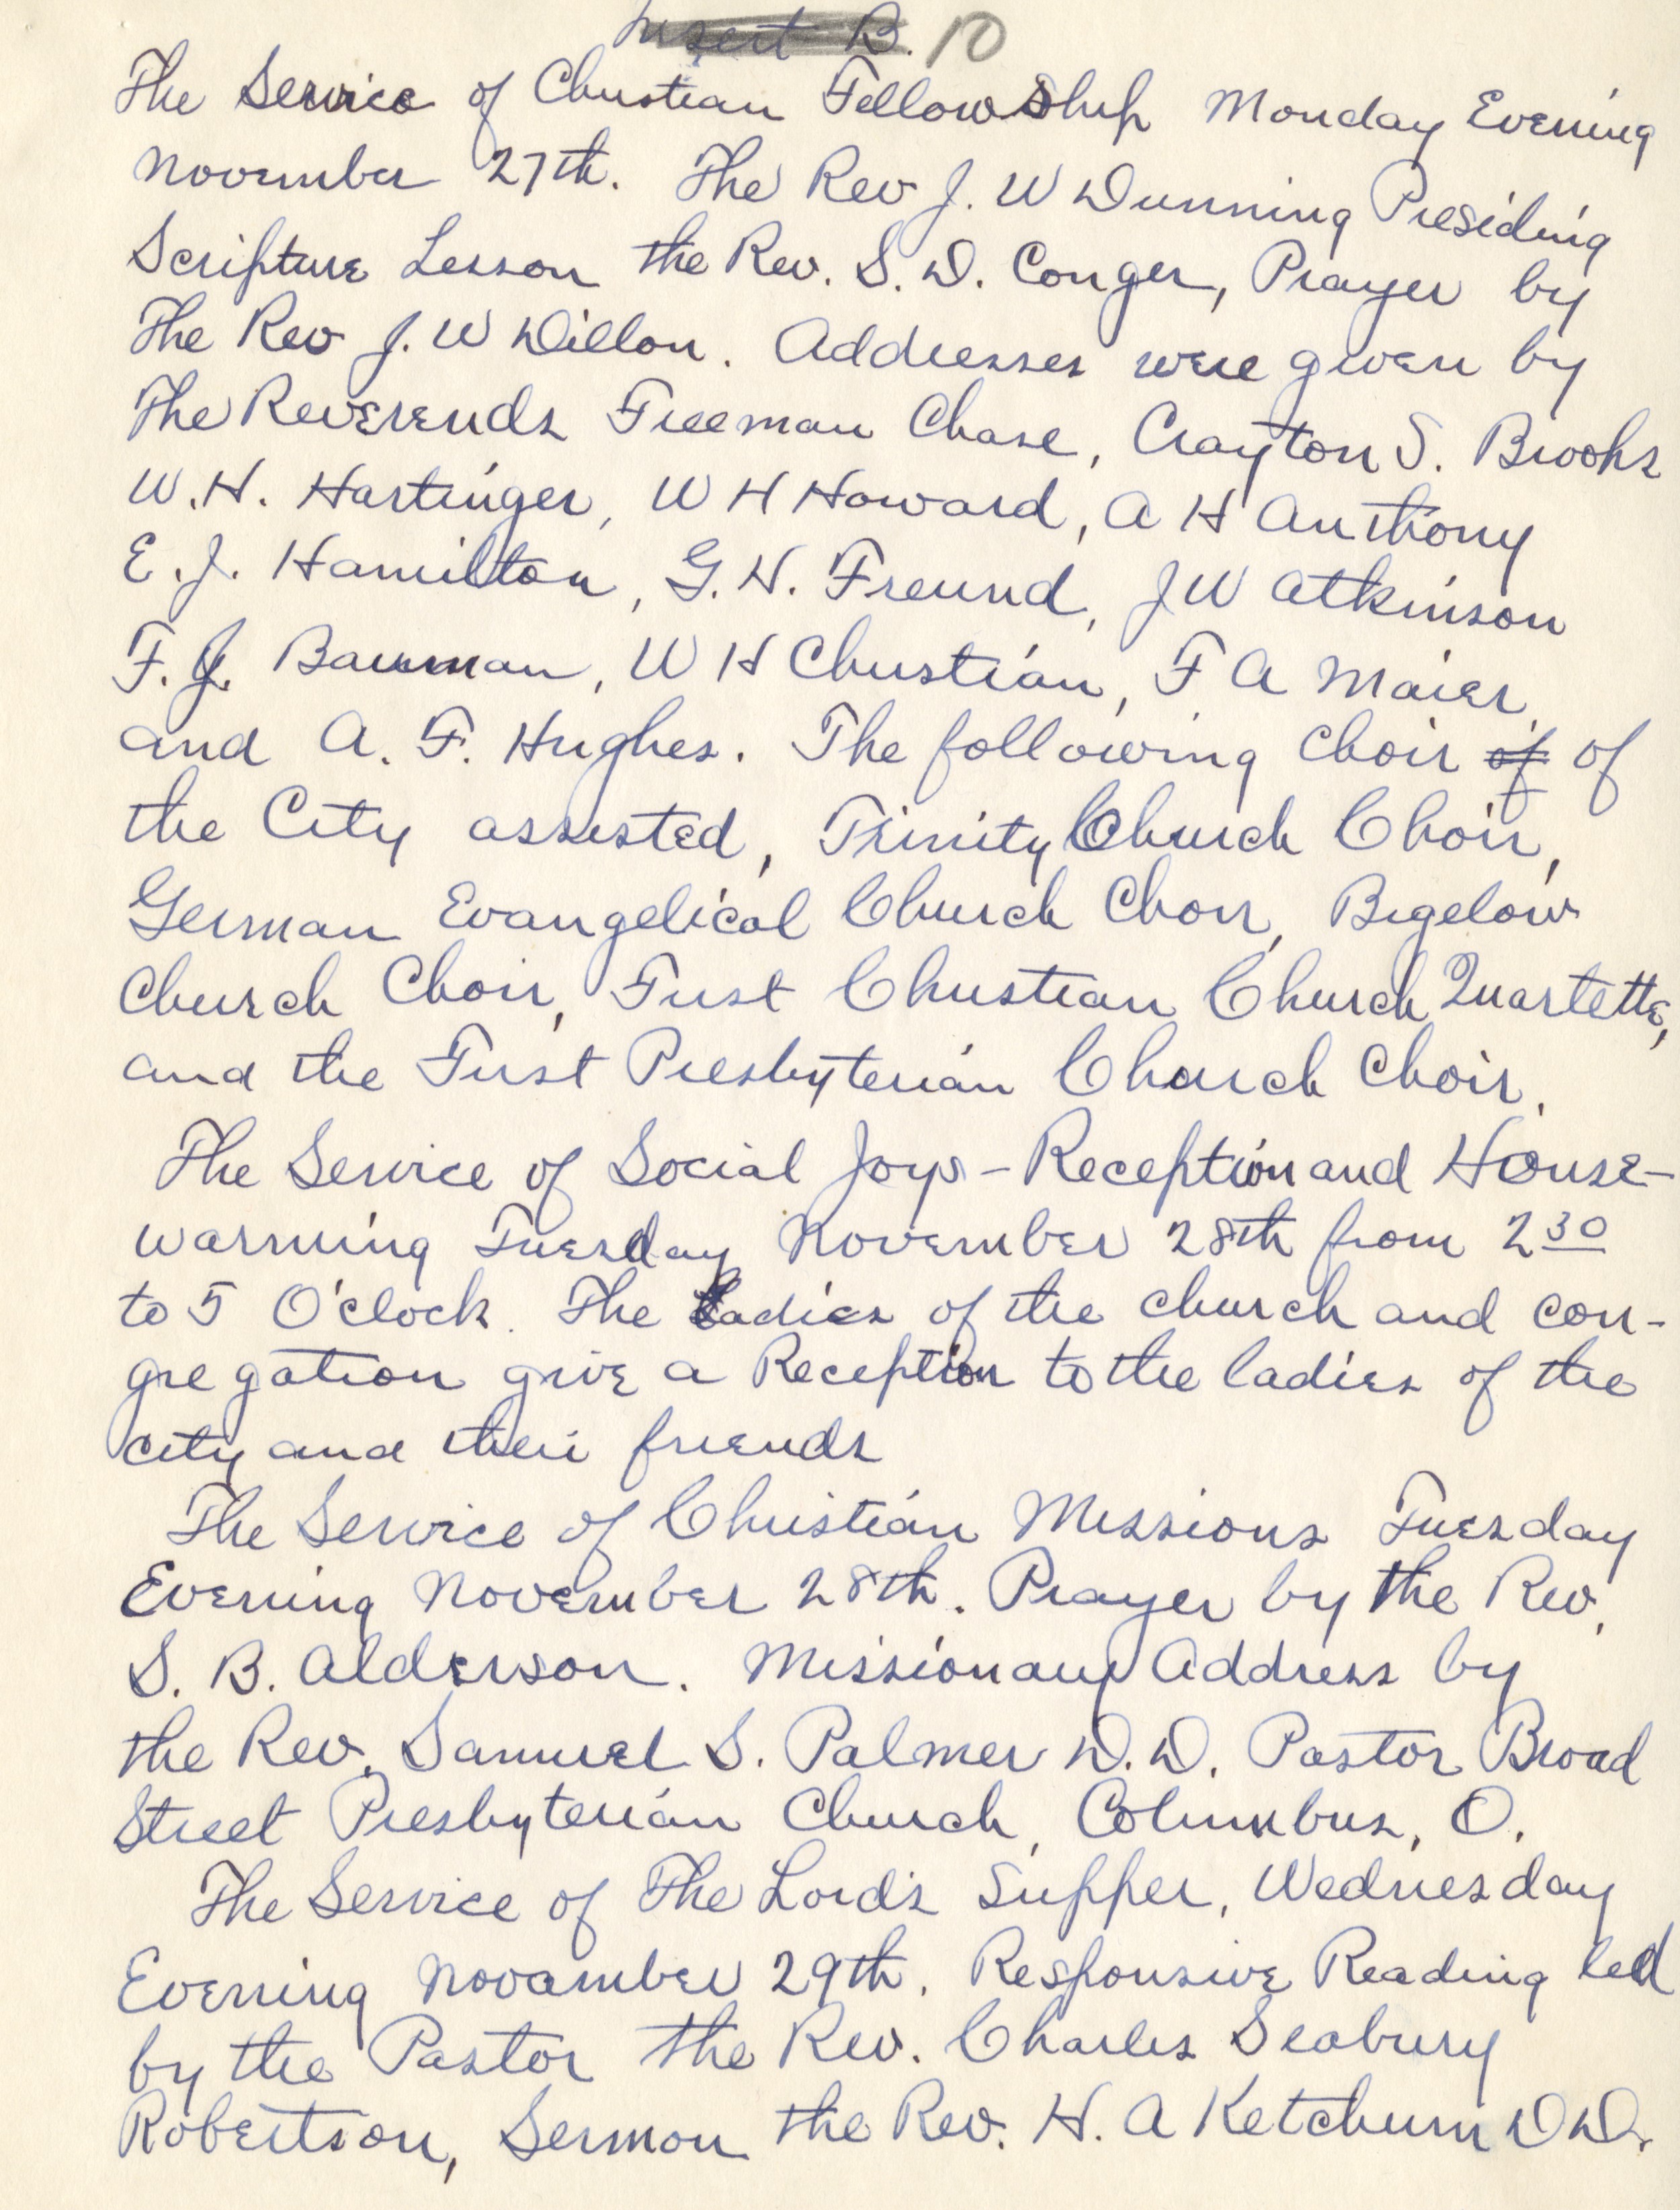 Insert B. 10
The Service of Christian Fellowship Monday Evening
November 27th. The Rev J. W Dunning Presiding
Scripture Lesson the Rev. S. D. Conger, Prayer by
The Rev J. W Dillon. Addresses were given by
The Reverends Freeman Chase, Crayton S. Brooks
W. H. Hartinger, W H Howard, A H Anthony
E. J. Hamilton, G. H. Freund, J W Atkinson
F. J. Bauman, W H Christian, F A Maier,
and A. F. Hughes. The following choir of of
the City assisted, Trinity Church Choir,
German Evangelical Church Choir, Bigelow
Church Choir, First Christian Church Quartette,
and the First Presbyterian Church Choir.
The Service of Social Joys - Reception and House-
warming Tuesday November 28th from 2 30
to 5 O'clock. The Ladies of the church and con-
gregation give a Reception to the ladies of the
city and their friends
The Service of Christian Missions Tuesday
Evening November 28th. Prayer by the Rev.
S. B. Alderson. Missionary Address by
the Rev. Samuel S. Palmer D. D. Pastor Broad
Street Presbyterian Church, Columbus, O.
The Service of The Lord's Supper, Wednesday
Evening November 29th. Responsive Reading led
by the Pastor the Rev. Charles Seabury
Robertson, Sermon the Rev. H. A Ketchum D D.